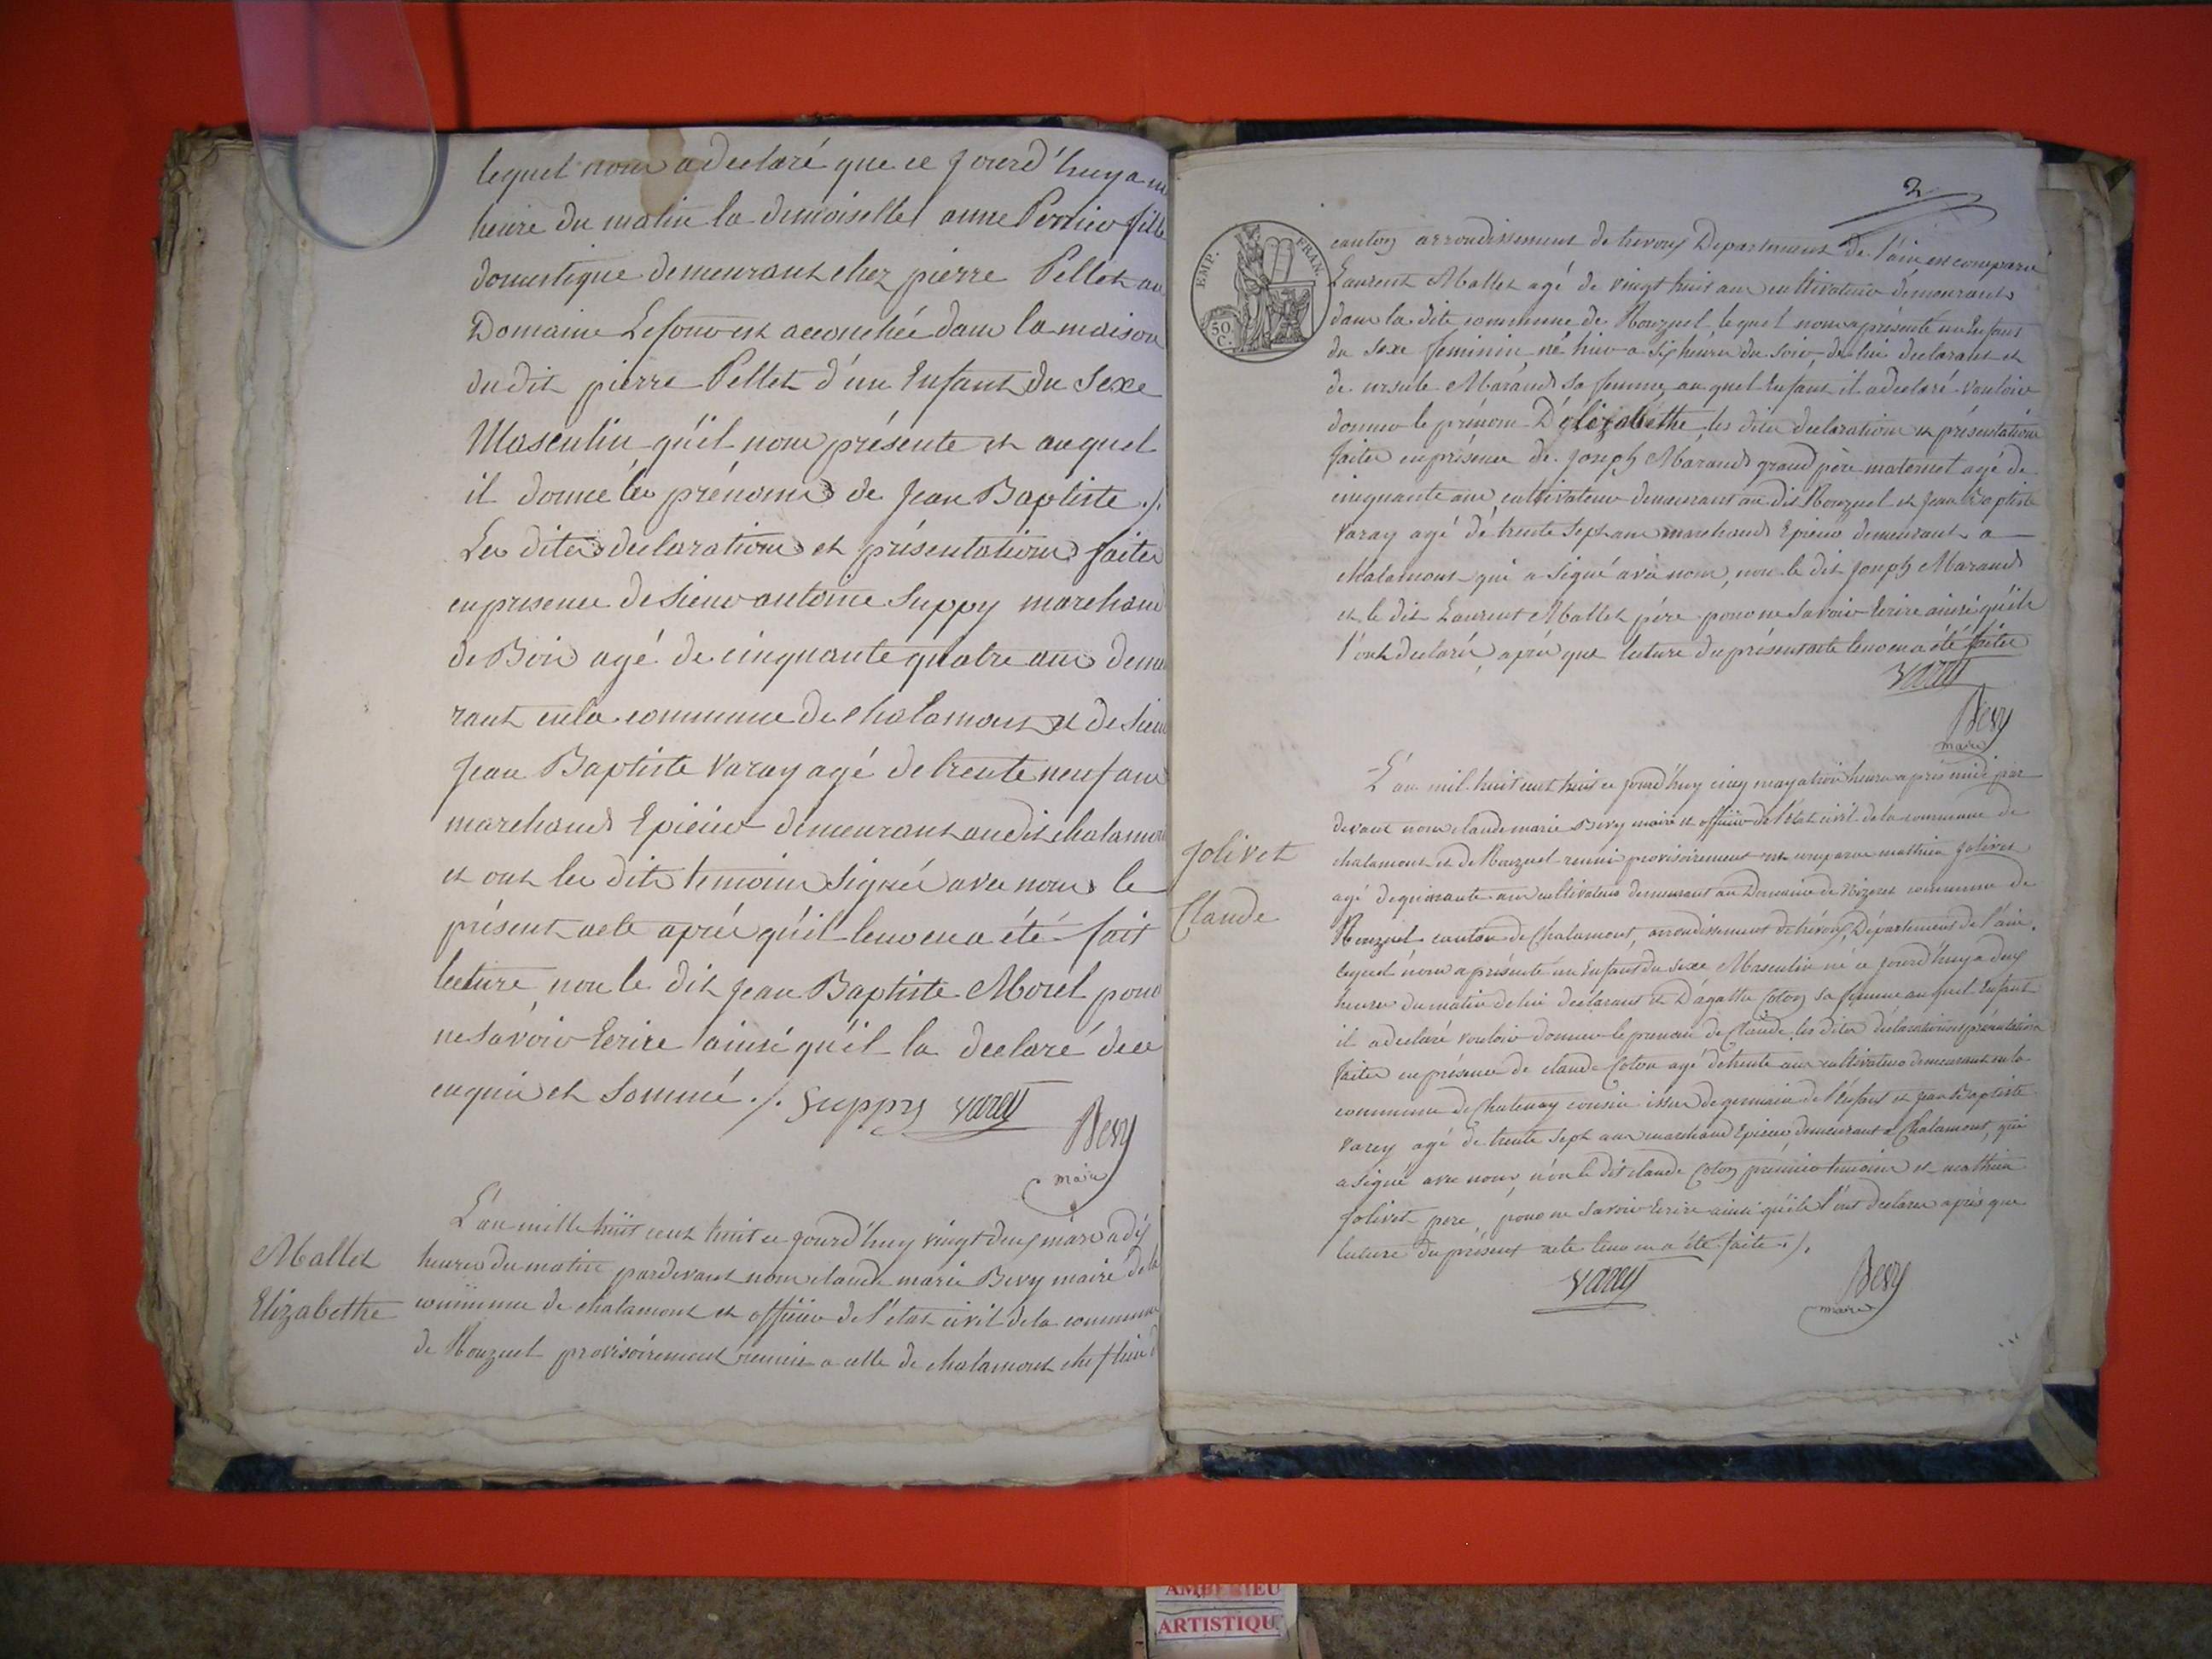 lequel nous a declaré que ce jourd'huy a une
heure du matin la demoiselle anne Perrier fille
domestique demeurant chez pierre Pellet au
Domaine est accouchée dans la maison
du dit pierre Pellet d'un Enfant du Sexe
Masculin qu'il nous présente et auquel
il donne les prénoms de Jean Baptiste ./.
Les dites declarations et présentations faites
en presence de sieur antoine Suppy marchand
de Bois agé de cinquante quatre ans demeu
rant en la commune de chalamont et de sieur
Jean Baptiste Varay agé de trente neuf ans
marchand Epicier demeurant audit chalamont
et ont les dits temoins signés avec nous le
présent acte après qu'il leur en a été fait
lecture, non le dit Jean Baptiste Morel pour
ne savoir Ecrire ainsi qu'il la declaré de ce
enquis et sommé ./. Suppy varey
Bevy
maire
Mallet
Elizabethe
L'an mille huit cent huit ce jourd'huy vingt deux mars a dix
heures du matin pardevant nous claude marie Bevy maire de la
commune de chalamont et officier de l'état civil de la commune
de Ronzuel provisoirement réunie a celle de chalamont chef lieu d
2
EMP. FRAN.
50
C.
canton arrondissement de trevoux Departement de l'ain est comparu
Laurent Mallet agé de vingt huit ans cultivateur demeurant
dans la dite commune de Ronzuel, lequel nous a présenté un Enfant
du sexe feminin né hier a six heures du soir de lui declarant et
de ursule Marand sa femme, au quel Enfant il a declaré vouloir
donner le prénom D'elizabethe, les dites declarations et présentations
faites en présence de Joseph Marand grand père maternel agé de
cinquante ans, cultivateur demeurant au dit Ronzuel et Jean Baptiste
Varay agé de trente sept ans marchand Epicier demeurant a
chalamont qui a signé avec nous, non le dit Joseph Marand
et le dit Laurent Mallet père pour ne savoir Ecrire ainsi qu'ils
l'ont declaré, après que lecture du présent acte leur en a été faite
varey
Bevy
maire
Jolivet
Claude
L'an mil huit cent huit ce jourd'huy cinq may a trois heures après midi par
devant nous claude marie Bevy maire et officier de l'état civil de la commune de
chalamont et de Ronzuel reunie provisoirement est comparu mathieu Jolivet
agé de quarante ans cultivateur demeurant au Domaine de commune de
Ronzuel canton de Chalamont, arrondissement de trévoux, Département de l'ain,
lequel nous a présenté un Enfant du sexe Masculin né ce jourd'huy a deux
heures du matin de lui declarant et D'agathe Coton sa femme auquel Enfant
il a declaré vouloir donner le prenom de Claude, les dites déclarations et présentation
faites en présence de claude Coton agé de trente ans cultivateur demeurant en la
commune de Chatenay cousin issu de germain de l'Enfant et Jean Baptiste
Varey agé de trente sept ans marchand Epicier demeurant a Chalamont, qui
a signé avec nous, non le dit claude Coton premier temoin et mathieu
Jolivet pere, pour ne savoir Ecrire ainsi qu'ils l'ont declaré après que
lecture du présent acte leur en a été faite ./.
varey
Bevy
maire
ARTISTIQU